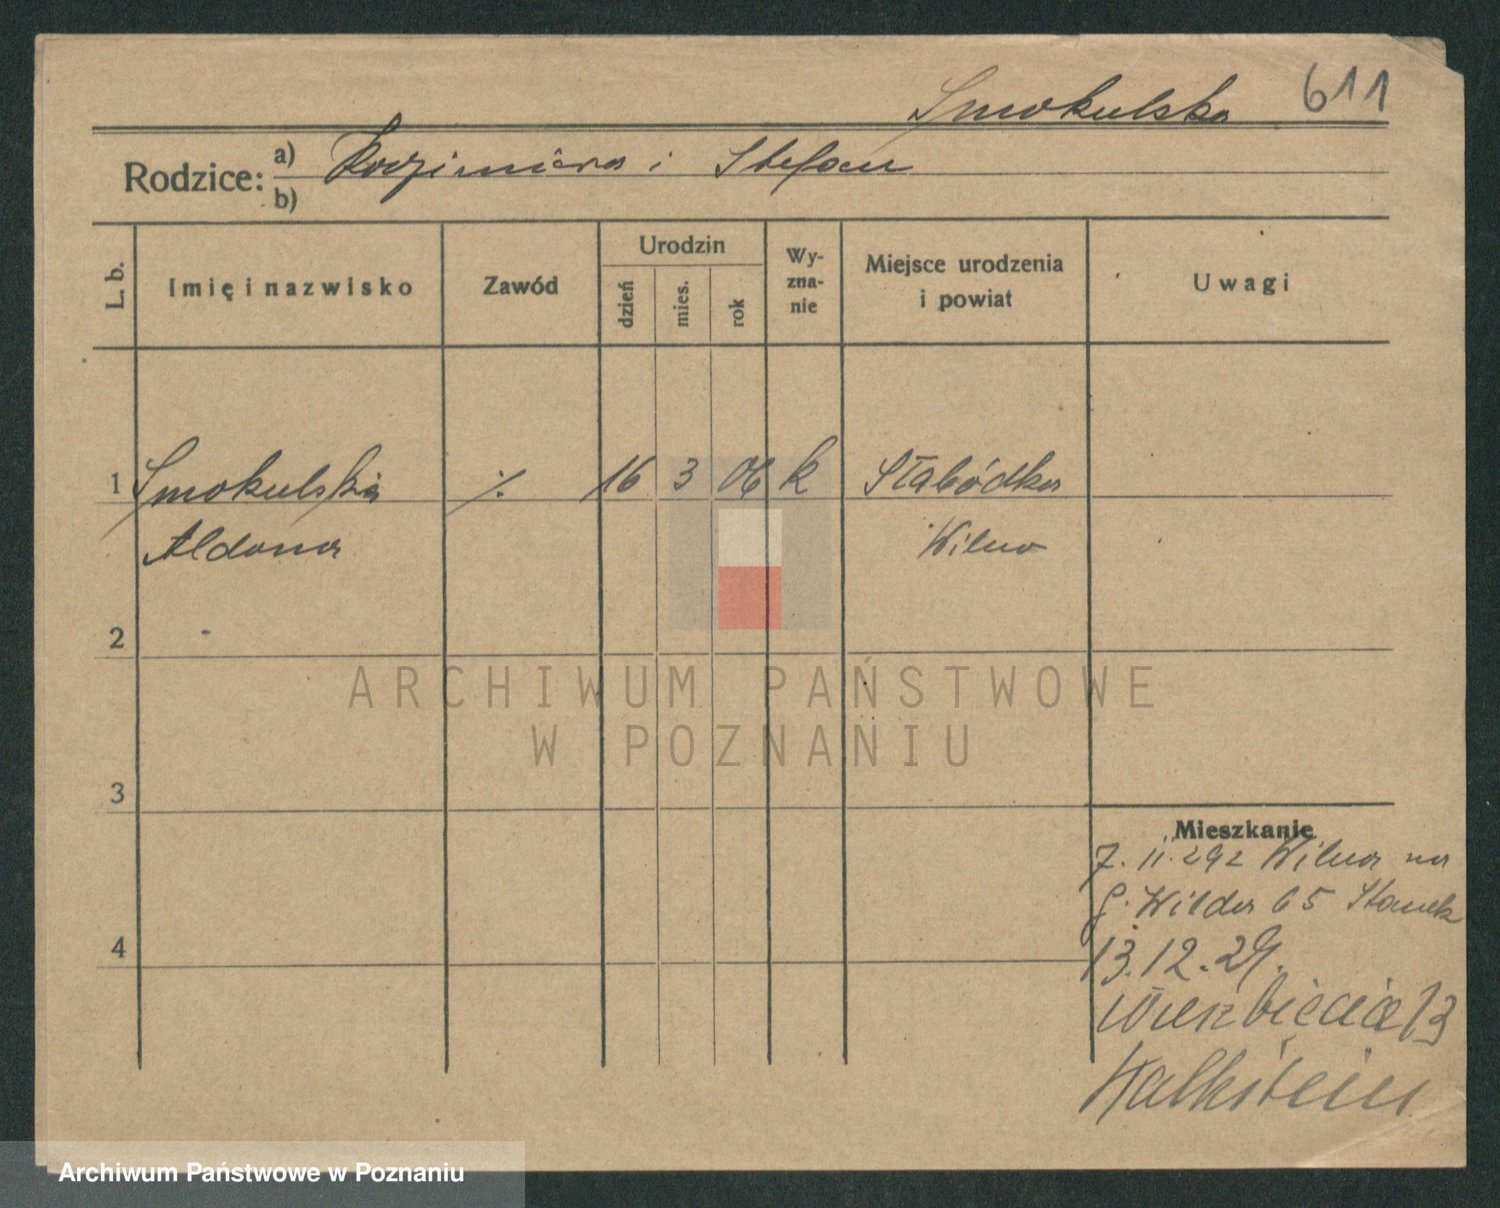 Smokulska 611
Rodzice: a) Kazimiera i Stefan
b)
L. b.
Imię i nazwisko
Zawód
Urodzin
dzień
mies.
rok
Wy-
zna-
nie
Miejsce urodzenia
i powiat
Uwagi
1 Smokulska ·/. 16 3 06 k Słabódka
Aldona Wilno
2
3
4
ARCHIWUM PAŃSTWOWE
W POZNANIU
Mieszkanie
7. 11. 292 Wilna na
g. Wilda 65
13.12.29.
Wierzbięcice 13
Kalkstein
Archiwum Państwowe w Poznaniu